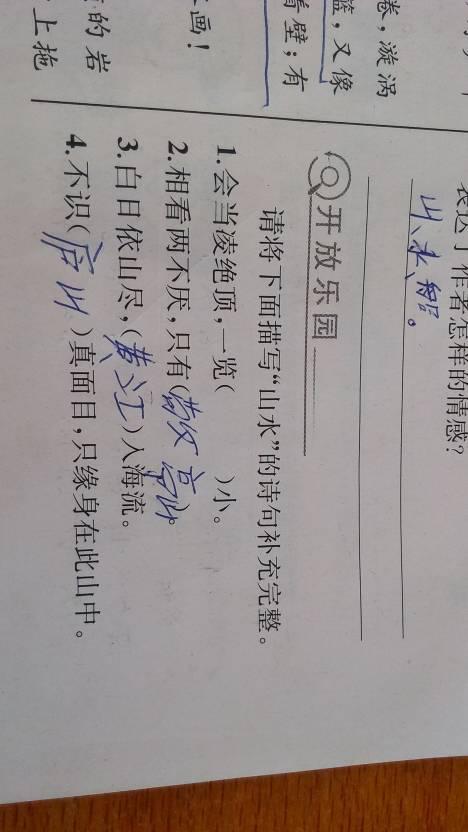 卷,漩涡
篮,又像
着壁;有
画!
的岩
上拖
表达了作者怎样的情感?
山、水、船。
开放乐园
请将下面描写“山水”的诗句补充完整。
1.会当凌绝顶,一览(　　　)小。
2.相看两不厌,只有(敬亭山)。
3.白日依山尽,(黄江)入海流。
4.不识(庐山)真面目,只缘身在此山中。